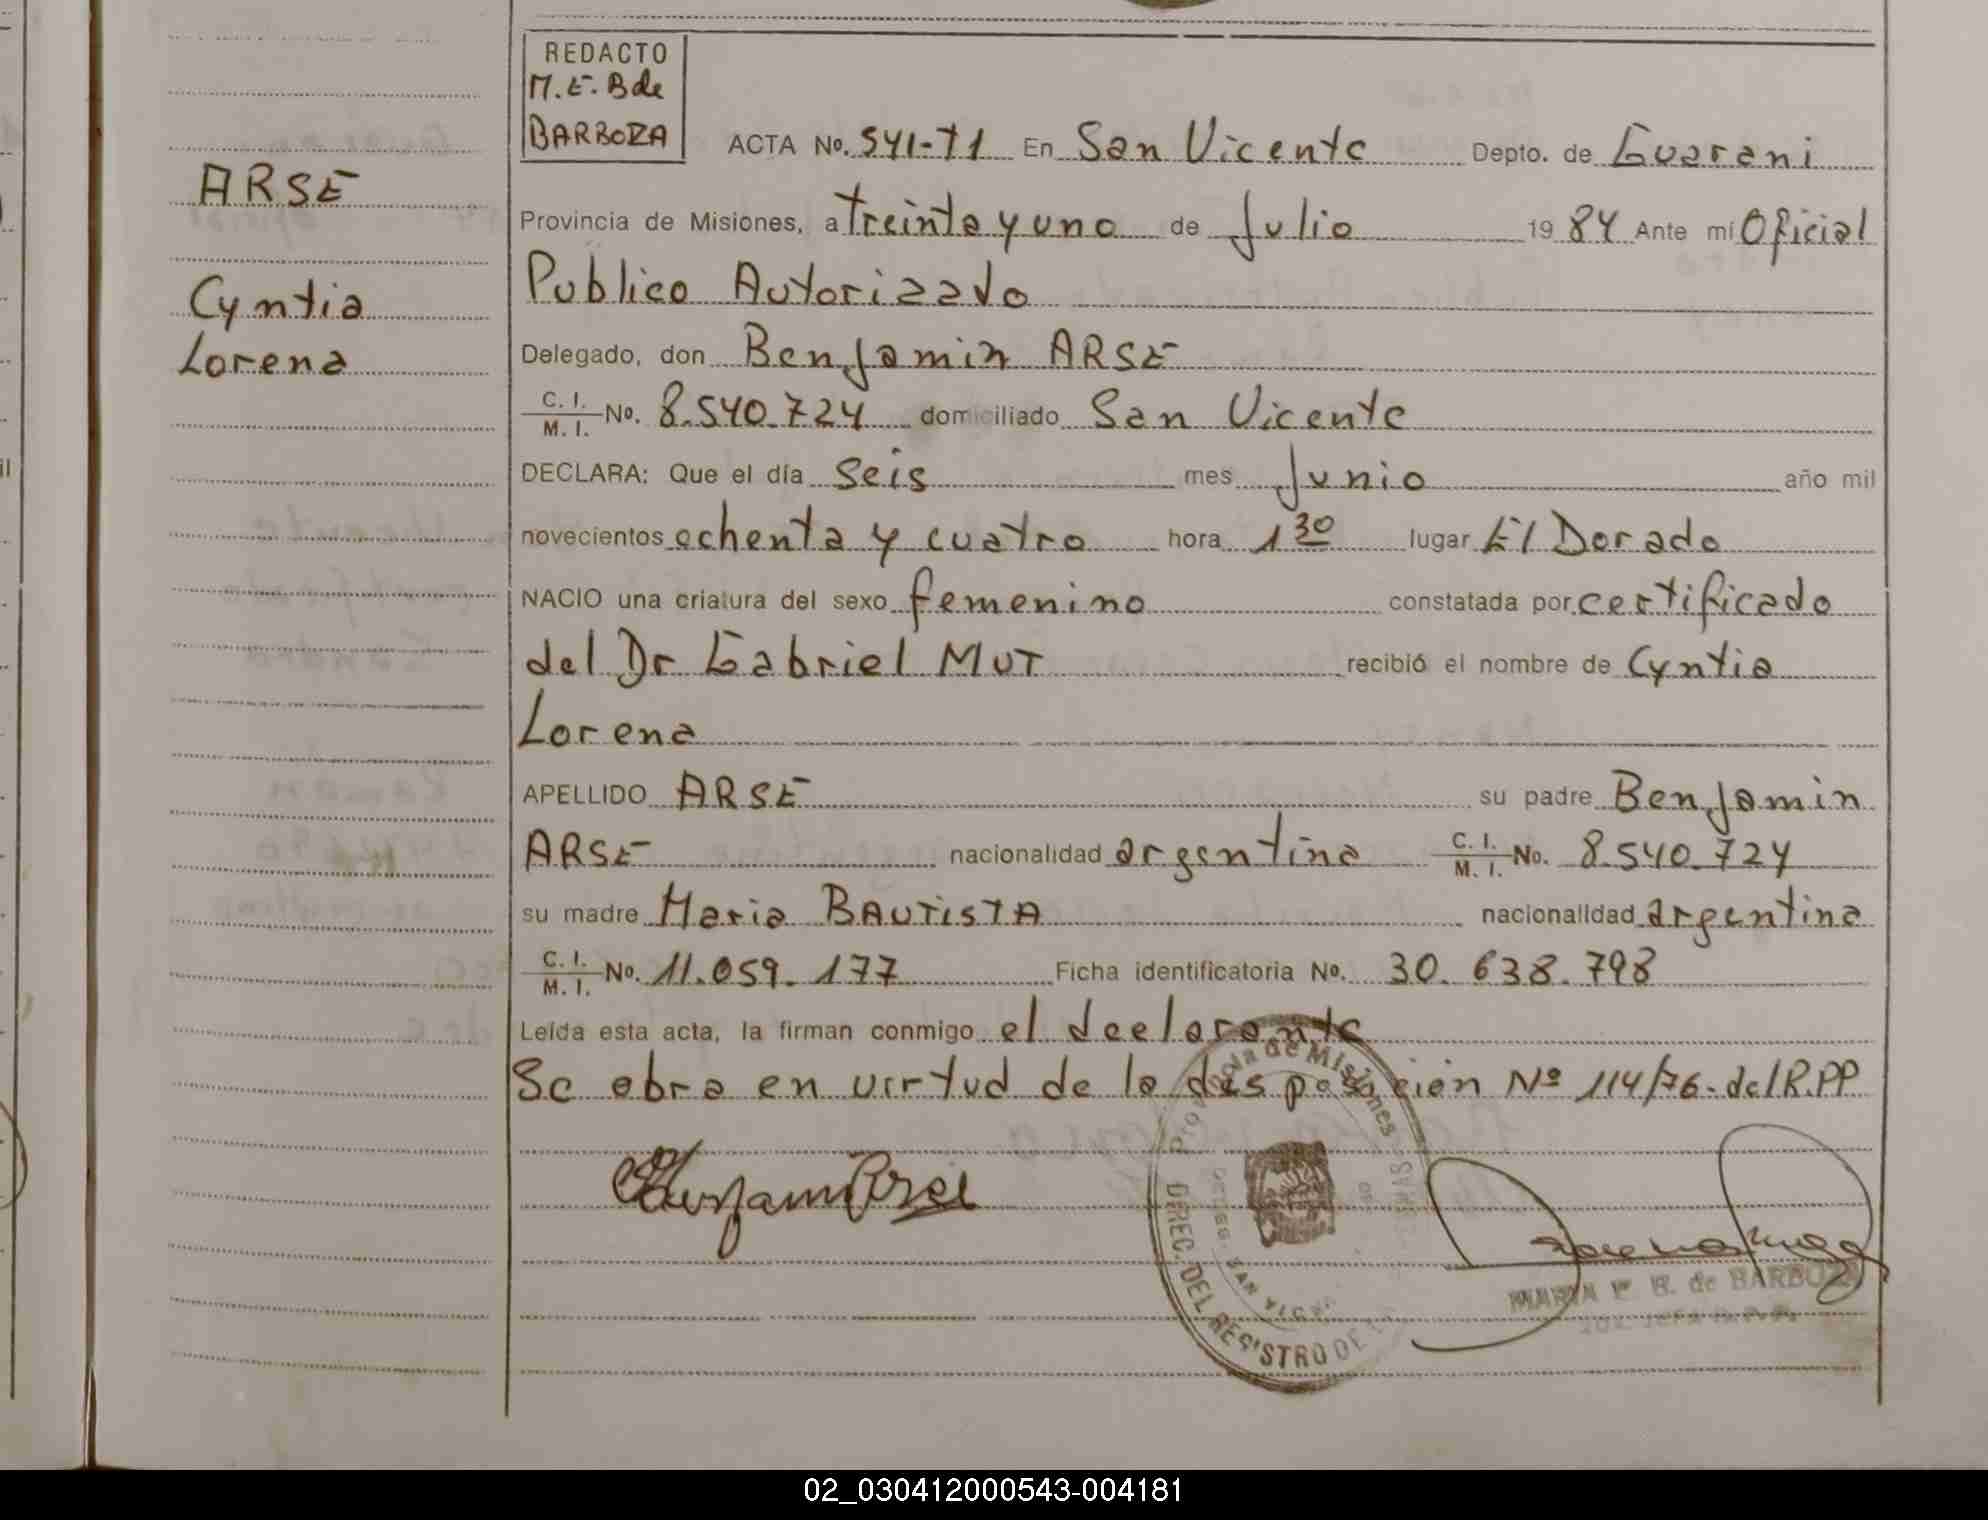 REDACTO
M.E. B de
BARBOZA
ACTA No. 541-T1 En San Vicente Depto. de Guarani
ARSE
Provincia de Misiones, a treinta y uno de Julio 1984 Ante mí Oficial
Publico Autorizado
Cyntia
Lorena
Delegado, don Benjamin ARSE
C. I. / M. I. No. 8.540.724 domiciliado San Vicente
DECLARA: Que el día Seis mes Junio año mil
novecientos ochenta y cuatro hora 1 30 lugar El Dorado
NACIO una criatura del sexo femenino constatada por certificado
del Dr Gabriel MUT recibió el nombre de Cyntia
Lorena
APELLIDO ARSE su padre Benjamin
ARSE nacionalidad argentina C. I. / M. I. No. 8.540.724
su madre Maria BAUTISTA nacionalidad argentina
C. I. / M. I. No. 11.059.177 Ficha identificatoria No. 30.638.798
Leída esta acta, la firman conmigo el declarante
Se obra en virtud de la disposición Nº 114/76- del R.PP
Provincia de Misiones
DIREC. DEL REGISTRO DE
MARIA E. B. de BARBOZA
02_030412000543-004181